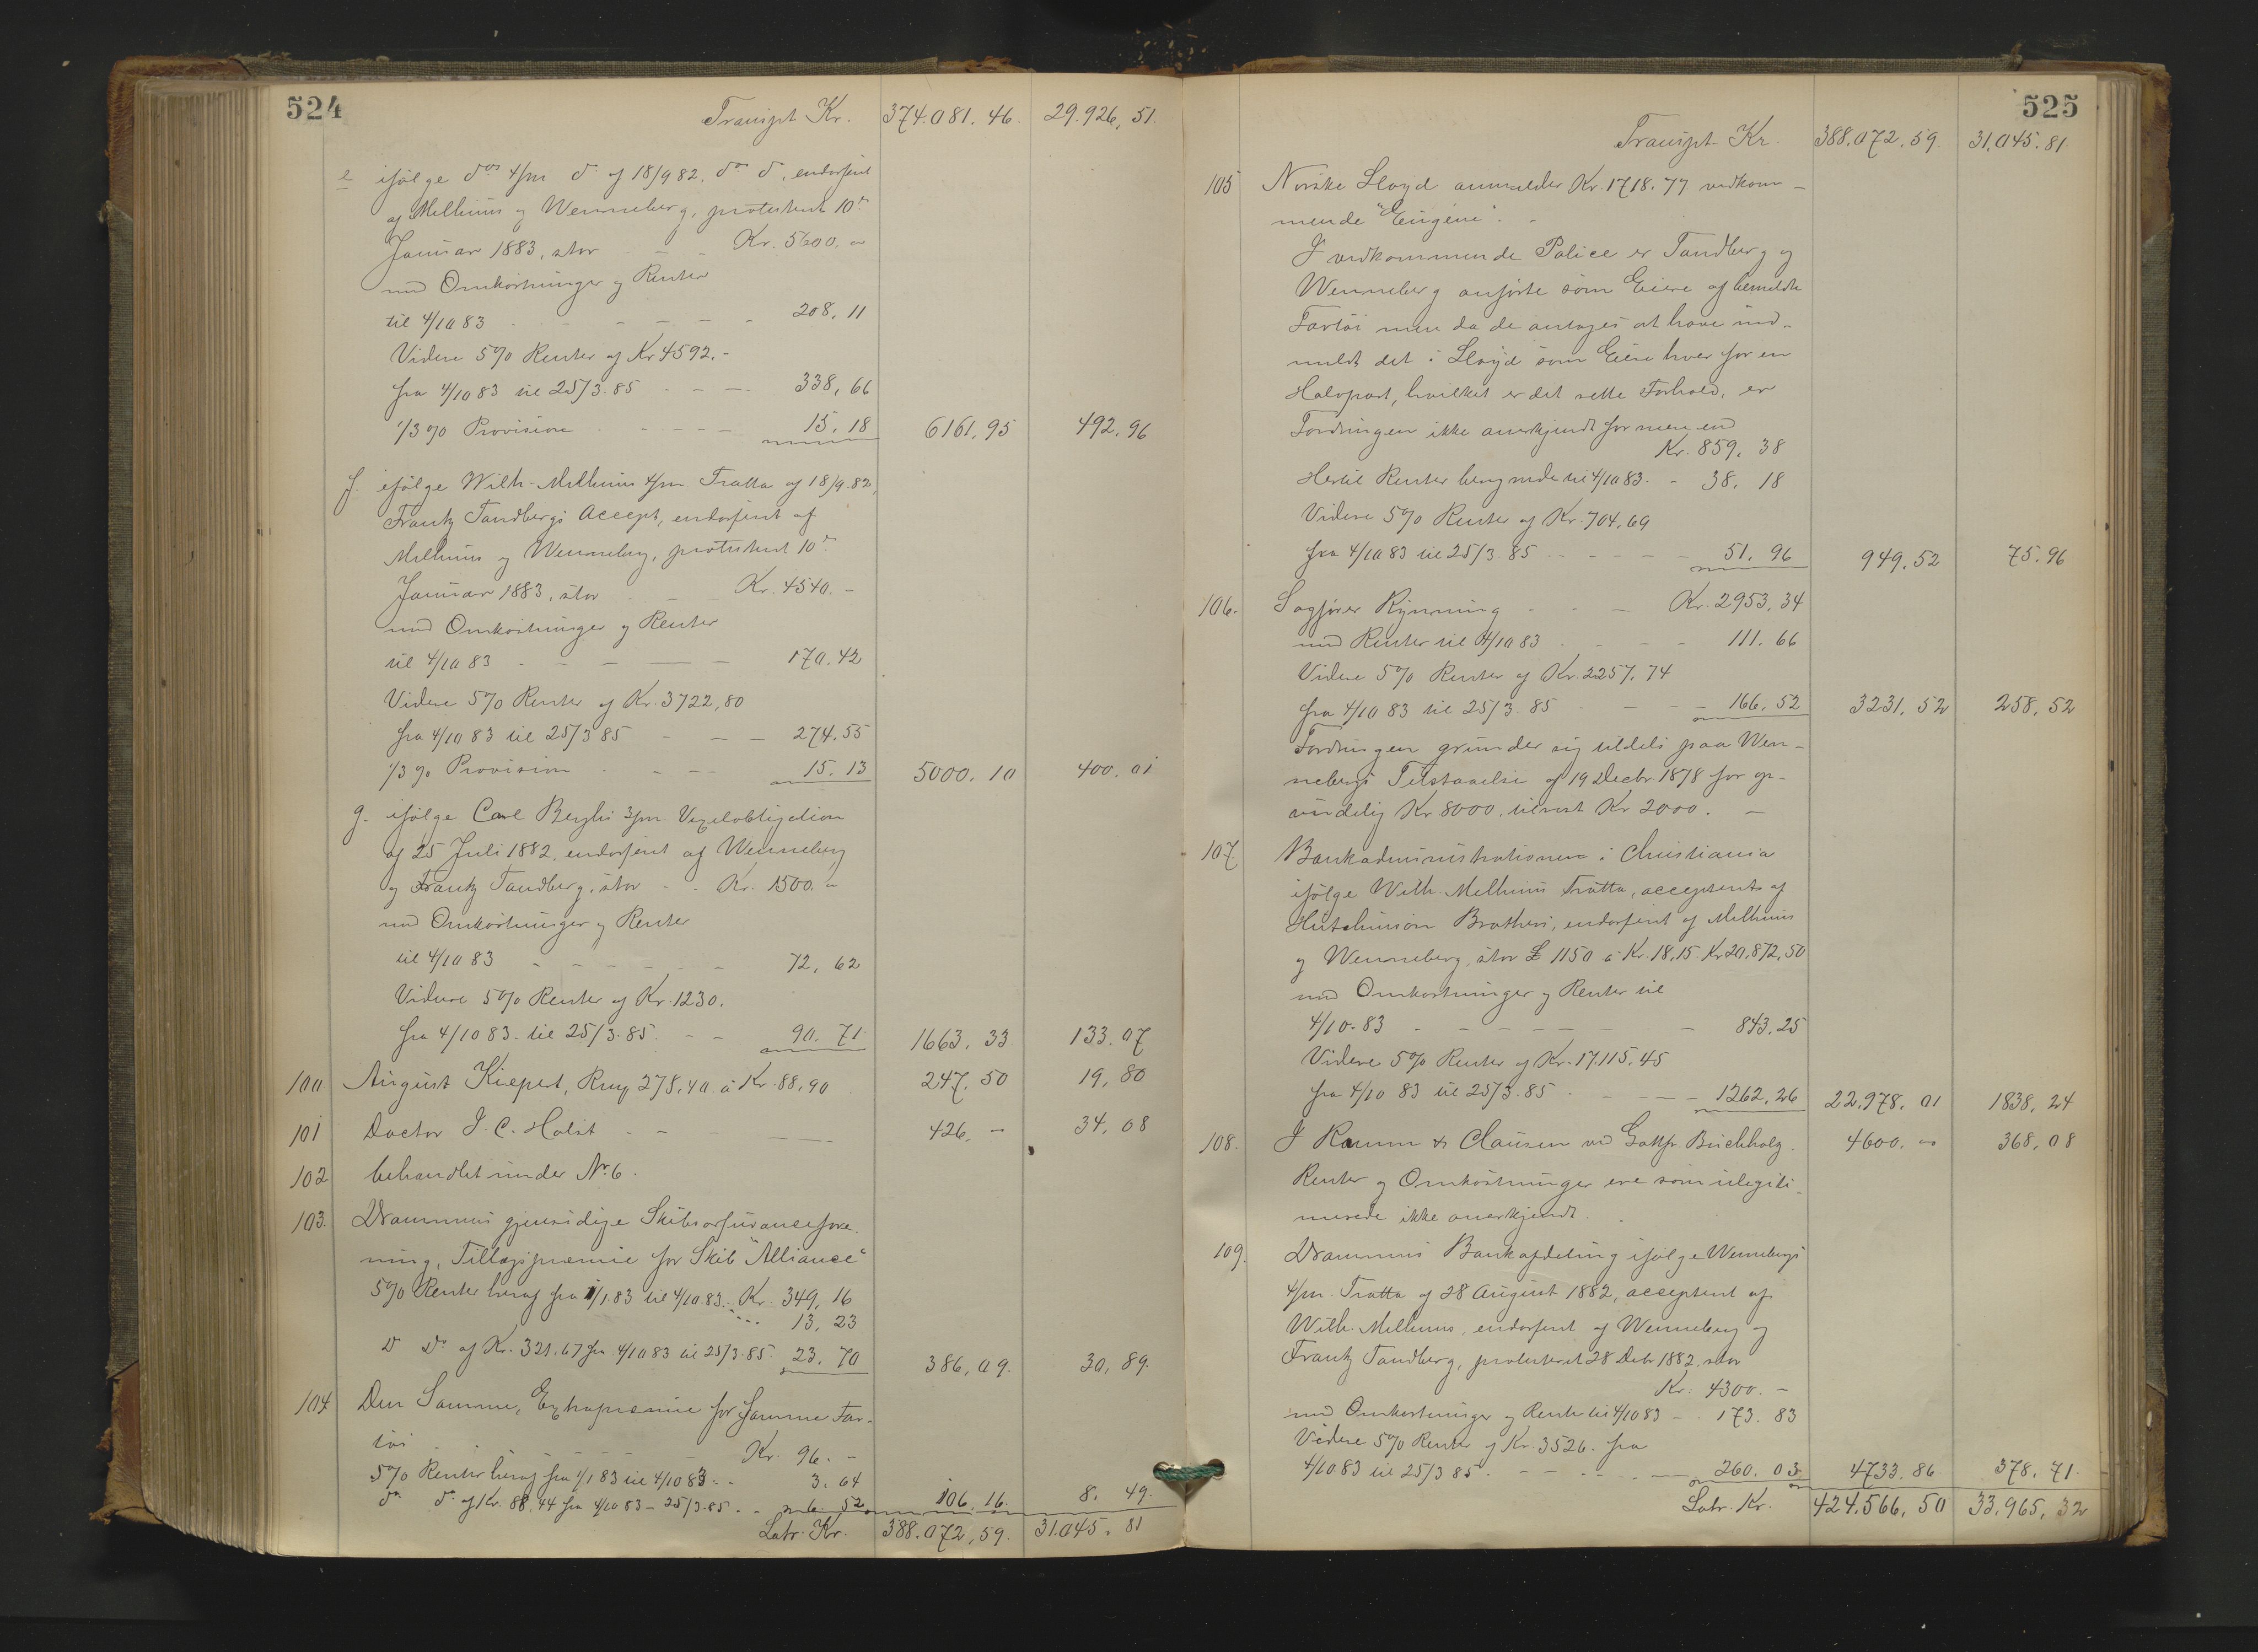 524
Transpt Kr. 374.081.46. 29.926,51.
e ifølge dos 4/m do. af 18/9 82, do d., endosseret
af Melhuus og Wenneberg, protesteret 10de
Januar 1883, stor - - Kr. 5600. "
med Omkostninger og Renter
til 4/10 83 - - - - - - 208,11
Videre 5% Renter af Kr 4592.-
fra 4/10 83 til 25/3.85 - - - 338,66
1/3 % Provision - - - - - 15.18 6161.95 492.96
f. ifølge Wilh. Melhuus 4/m Tratta af 18/9.82,
Frantz Tandbergs Accept, endosseret af
Melhuus og Wenneberg, protesteret 10de
Januar 1883, stor - - Kr. 4540. -
med Omkostninger og Renter
til 4/10 83 - - - - - 170.42
Videre 5% Renter af Kr. 3722,80
fra 4/10 83 til 25/3 85 - - - 274.55
1/3 % Provision - - - - 15.13 5000.10 400.01
g. ifølge Carl Berghs 3/m. Vexelobligation
af 25 Juli 1882, endosseret af Wenneberg
og Frantz Tandberg, stor - - Kr. 1500. "
med Omkostninger og Renter
til 4/10 83 - - - - - - 72,62
Videre 5% Renter af Kr. 1230.
fra 4/10 83 til 25/3.85. - - 90.71. 1663.33 133.07
100 August Kiepert, Rmp 278.40 à Kr. 88,90 247.50 19,80
101 Doctor J. C. Holst - - - - 426. - 34.08
102 behandlet under No. 6.
103. Drammens gjensidige Skibsassurancefore-
ning, Tillægspræmie for Skib "Alliance"
5% Renter heraf fra 1/1.83 til 4/10.83. Kr. 349.16
13.23
D do af Kr. 321.67 fra 4/10 83 til 25/3.85. 23.70 386,09. 30,89.
104 Den Samme, Extrapræmie for samme Far-
tøi - - - - - Kr. 96. -
5% Renter heraf fra 1/1 83 til 4/10 83. - 3.64
do. do. af Kr. 88.44 fra 4/10 83 - 25/3.85. - 6.52 106.16. 8.49.
Latr. Kr. 388.072,59. 31.045.81
525
Transpt Kr. 388.072.59. 31.045.81.
105 Norske Lloyd anmelder Kr. 1718.77 vedkom-
mende "Eugénie". -
I vedkommende Police er Tandberg og
Wenneberg anførte som Eiere af bemeldte
Fartøi men da de antages at have ind-
meldt det i Lloyd som Eiere hver for en
Halvpart, hvilket er det rette Forhold, er
Fordringen ikke anerkjendt for mere end
Kr. 859.38
Hertil Renter beregnede til 4/10 83. - 38.18
Videre 5% Renter af Kr. 704.69
fra 4/10 83 til 25/3.85 - - - - 51.96 949.52 75.96
106. Sagfører Rynning - - - Kr. 2953.34
med Renter til 4/10 83 - - - 111.66
Videre 5% Renter af Kr. 2257.74
fra 4/10 83 til 25/3.85 - - - 166.52 3231.52 258.52
Fordringen grunder sig tildels paa Wen-
nebergs Tilstaaelse af 19 Decbr. 1878 for op-
rindelig Kr. 8000. tilrest Kr 2000. -
107. Bankadministrationen i Christiania
ifølge Wilh. Melhuus Tratta, accepteret af
Hutchinson Brothers, endosseret af Melhuus
og Wenneberg, stor £ 1150 à Kr. 18.15. Kr 20,872,50
med Omkostninger og Renter til
4/10.83 - - - - - - 843.25
Videre 5% Renter af Kr. 17.115.45
fra 4/10 83 til 25/3.85 - - - - 1262.26 22.978.01 1838.24
108. J Ramm & Clausen ved Gottfr Buchholz. 4600. " 368.08
Renter og Omkostninger ere som ulegiti-
merede ikke anerkjendt.
109. Drammens Bankafdeling ifølge Wennebergs
4/m. Tratta af 28 August 1882, accepteret af
Wilh. Melhuus, endosseret af Wenneberg og
Frantz Tandberg, protesteret 28 Decbr 1882, stor
Kr. 4300. -
med Omkostninger og Renter til 4/10 83 - 173.83
Videre 5% Renter af Kr. 3526. fra
4/10.83 til 25/3 85. - - - - 260.03. 4733.86 378.71.
Latr. Kr. 424.566,50 33.965,32